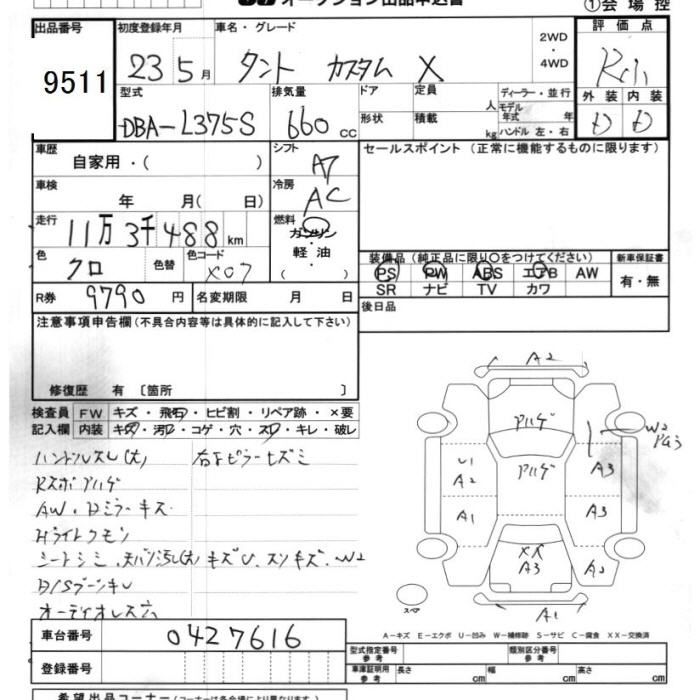 オークション出品申込書
①会場控
出品番号 初度登録年月 車名・グレード 評価点
9511 23 5月 タント カスタム X 2WD・4WD
型式 排気量 ドア 定員 人 ディーラー・並行 外装 内装
DBA-L375S 660 CC 形状 積載 kg モデル年式 年 ハンドル 左・右 D D
車歴 シフト セールスポイント(正常に機能するものに限ります)
自家用・( ) AT
車検 冷房
年 月( 日) AC
走行 11万3千488km 燃料
ガソリン・軽油
( )
色 クロ 色替 色コード X07
装備品(純正品に限り〇をつけてください) 新車保証書
PS PW ABS エアB AW 有・無
SR ナビ TV カワ
R券 9790円 名変期限 月 日 後日品
注意事項申告欄(不具合内容等は具体的に記入して下さい)
修復歴 有〔箇所 〕
検査員 FW キズ・飛石・ヒビ割・リペア跡・×要
記入欄 内装 キズ・汚れ・コゲ・穴・スレ・キレ・破レ
ハンドルスレ(大) 右Fピラーヒズミ
Rスポアハゲ
AW・Dミラーキズ
Hライトクモリ
オーディオレス穴
A2
アハゲ
W2
PG3
U1
A2
アハゲ
A3
A1
A3
XX
A3
A2
スペア
A1
A-キズ E-エクボ U-凹み W-補修跡 S-サビ C-腐食 XX-交換済
車台番号 0427616
型式指定番号 参考 類別区分番号 参考
登録番号
車庫証明用 参考 長さ cm 幅 cm 高さ cm
希望出品コーナー(コーナーは各会場により異なります)